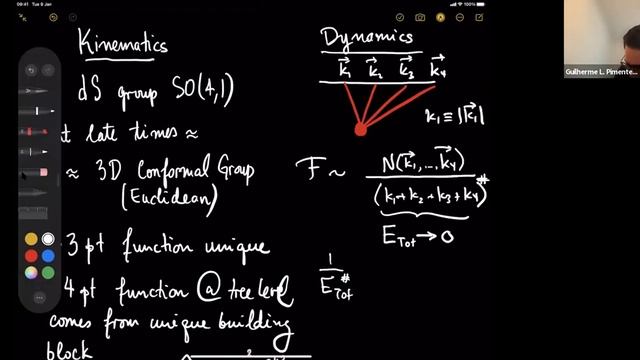 09:41 Tue 9 Jan
100%
Kinematics
dS group SO(4,1)
at late times ≈
≈ 3D Conformal Group
(Euclidean)
3 pt function unique
4 pt function @ tree level
comes from unique building
block
Dynamics
k⃗₁ k⃗₂ k⃗₃ k⃗₄
k₁ ≡ |k⃗₁|
F ~ N(k⃗₁,...,k⃗₄)
(k₁+k₂+k₃+k₄)^#
E_Tot → 0
1
E_Tot^#
Guilherme L. Pimente...